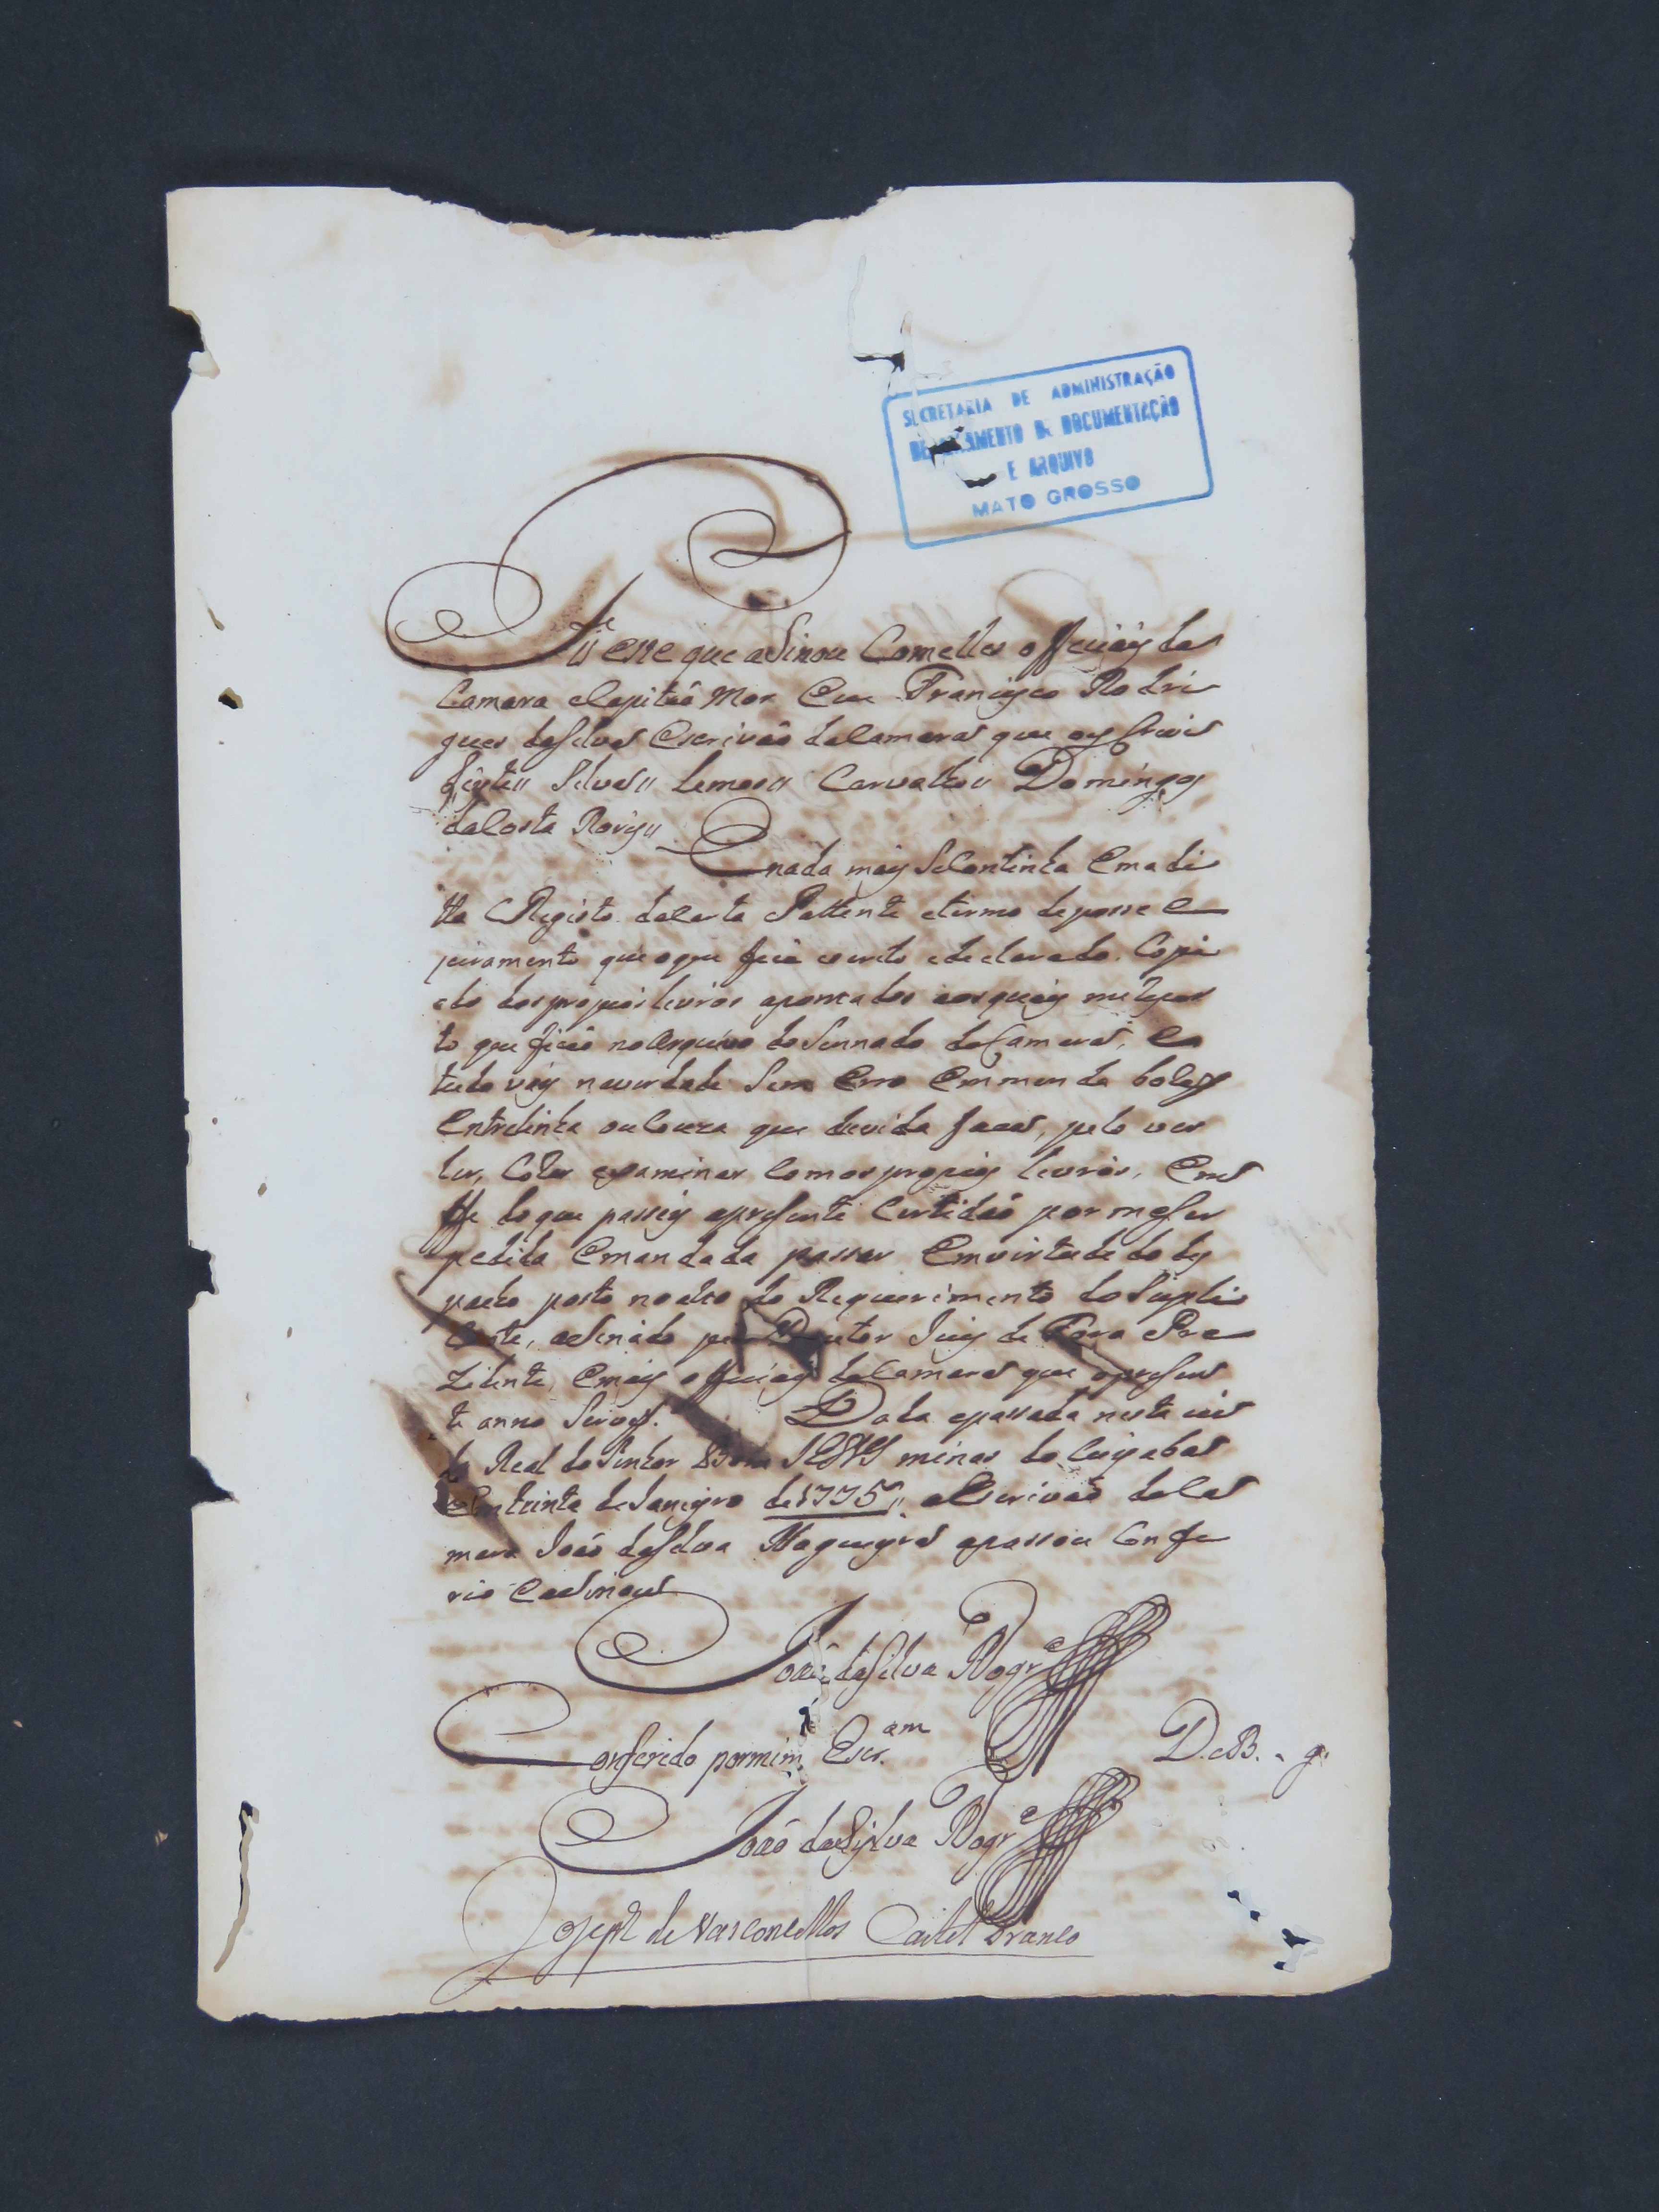 SECRETARIA DE ADMINISTRAÇÃO
DEPARTAMENTO DE DOCUMENTAÇÃO
E ARQUIVO
MATO GROSSO
este que aSinou Comelles officiáis da
Camara eCapitaõ Mor Eeu Francisco Rodri
gues daSilva Escrivaõ daCamara que os
Silva,, Lemos,, Carvalho,, Domingos
daCosta
Enada máis SeContinha Emadi
tta Registo daCarta Pattente etermo deposse e
juramento que oque fica escrito edeclarado Copi
ado dospropios livros apontados aosquais
to que ficaõ noArquivo doSennado daCamara, e
tudo vay naverdade Sem Erro Emmenda
Entrelinha ouCouza que duvida faca, pelo ver
ler, examinar Comospropios livros, Em
ffe doque passey apresente Certidaõ pormeSer
pedida Emandada passar Emvirtude do des
pacho posto noalto do Requerimento doSupli
cante, aSinado Doutor Juis de Fora Pre
Zidente, Emáis officiáis daCamara que opresen
te anno Dada epassada nesta
Real doSenhor JESUS minas do Cuyabá
trinta deJaneyro de1775,, oEscrivaõ daCa
mara Joaõ daSilva Nogueyra apassou Confe
rio EaSinou
Joaõ daSilva Nogr.ª
Conferido pormim Escr.am
D.
Joaõ daSylva Nogr.ª
Joseph de Vasconcellos Castel Branco